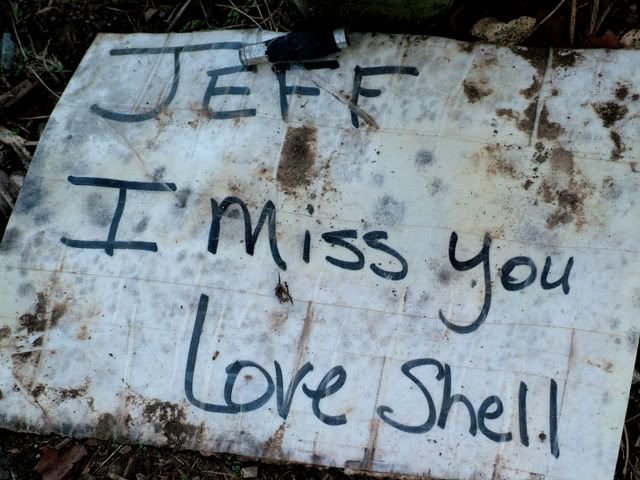 JEFF
I miss you
Love Shell